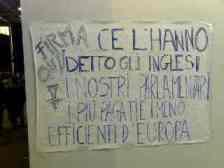 FIRMA
QUI
CE L'HANNO
DETTO GLI INGLESI
I NOSTRI PARLAMENTARI
I PIÙ PAGATI E I MENO
EFFICIENTI D'EUROPA